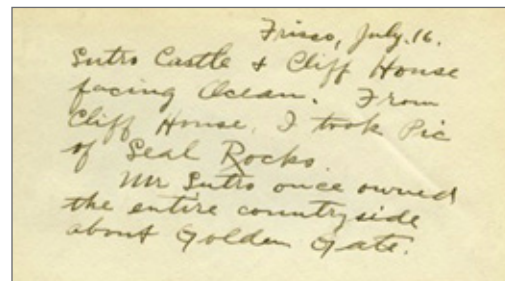 Frisco, July. 16.
Sutro Castle & Cliff House
facing Ocean. From
Cliff House, I took Pic
of Seal Rocks.
Mr Sutro once owned
the entire countryside
about Golden Gate.